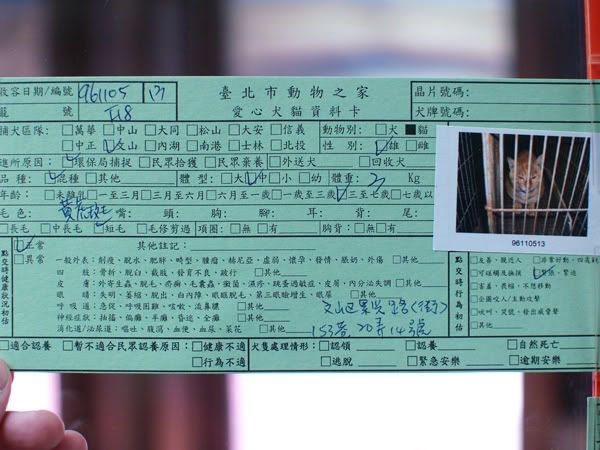 收容日期/編號 961105 13 臺北市動物之家 晶片號碼:
籠 號 F18 愛心犬貓資料卡 犬牌號碼:
捕犬區隊: □萬華 □中山 □大同 □松山 □大安 □信義 動物別: □犬 ■貓
□中正 ☑文山 □內湖 □南港 □士林 □北投 性 別: ☑雄 □雌
進所原因: ☑環保局捕捉 □民眾拾獲 □民眾棄養 □外送犬 □回收犬
品 種: ☑混種 □其他 體 型: □大 ☑中 □小 □幼 體重: 3 Kg
年齡: □未離乳 □一至三月 □三至六月 □六月至一歲 □一歲至三歲 ☑三至七歲 □七歲以上
毛 色: 黃虎斑 嘴: 頭: 胸: 腳: 耳: 背: 尾:
□長毛 □中長毛 ☑短毛 □毛修剪過 項圈: □無 □有 胸背: □無 □有
點交時健康狀況初估
☑正常 其他註記:
□異常 一般外表: 削瘦、脫水、肥胖、畸型、腫瘤、赫尼亞、虛弱、懷孕、發情、脫奶、外傷
四 肢: 骨折、脫臼、截肢、發育不良、政行 □其他
皮 膚: 外寄生蟲、脫毛、疥癬、毛囊蟲、黴菌、濕疹、跳蚤過敏症、皮屑、內分泌失調 □其他
眼 睛: 失明、萎縮、脫出、白內障、眼瞼脫毛、第三眼瞼增生、眼屎 □其他
呼 吸 道: 急促、呼吸困難、咳嗽、流鼻膿 □其他
神經症狀: 抽搐、偏癱、半癱、昏迷、全癱 □其他
消化道/泌尿道: 嘔吐、腹瀉、血便、血尿、菜花 □其他
文山區景興路(街)
153巷20弄14號
96110513
點交時行為初估
□友善、親近人 □非常好動、四處
□可碰觸及撫摸 ☑緊張、緊迫
□害羞、畏縮、不想移動
□企圖咬人/主動攻擊
□吠叫、哭號、發出威脅聲
□其他
□適合認養 □暫不適合民眾認養原因: □健康不適 犬隻處理情形: □認領 □認養 □自然死亡
□行為不適 □逃脫 □緊急安樂 □逾期安樂